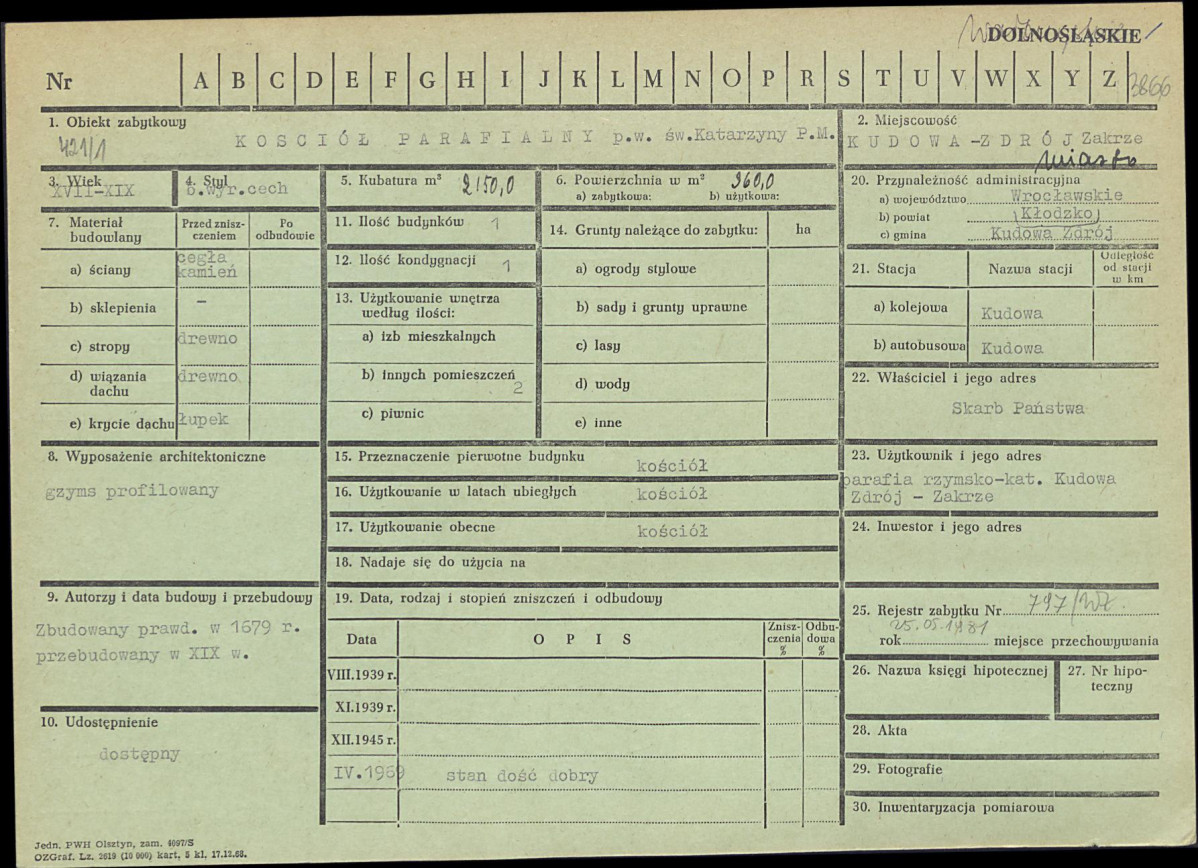 DOLNOŚLĄSKIE
Nr A B C D E F G H I J K L M N O P R S T U V W X Y Z 3866
1. Obiekt zabytkowy
421/1
KOSCIÓŁ PARAFIALNY p.w. św.Katarzyny P.M.
2. Miejscowość
KUDOWA-ZDRÓJ Zakrze
miasto
3. Wiek
XVII-XIX
4. Styl
b.wyr.cech
5. Kubatura m³ 2150,0
6. Powierzchnia w m² 360,0
a) zabytkowa: b) użytkowa:
7. Materiał budowlany
Przed znisz-
czeniem
Po
odbudowie
a) ściany cegła
kamień
b) sklepienia –
c) stropy drewno
d) wiązania
dachu drewno
e) krycie dachu łupek
8. Wyposażenie architektoniczne
gzyms profilowany
9. Autorzy i data budowy i przebudowy
Zbudowany prawd. w 1679 r.
przebudowany w XIX w.
10. Udostępnienie
dostępny
11. Ilość budynków 1
12. Ilość kondygnacji 1
13. Użytkowanie wnętrza
według ilości:
a) izb mieszkalnych
b) innych pomieszczeń
2
c) piwnic
14. Grunty należące do zabytku: ha
a) ogrody stylowe
b) sady i grunty uprawne
c) lasy
d) wody
e) inne
15. Przeznaczenie pierwotne budynku kościół
16. Użytkowanie w latach ubiegłych kościół
17. Użytkowanie obecne kościół
18. Nadaje się do użycia na
19. Data, rodzaj i stopień zniszczeń i odbudowy
Data OPIS
Znisz-
czenia
%
Odbu-
dowa
%
VIII.1939 r.
XI.1939 r.
XII.1945 r.
IV.1969 stan dość dobry
20. Przynależność administracyjna
a) województwo Wrocławskie
b) powiat Kłodzko
c) gmina Kudowa Zdrój
21. Stacja Nazwa stacji
Odległość
od stacji
w km
a) kolejowa Kudowa
b) autobusowa Kudowa
22. Właściciel i jego adres
Skarb Państwa
23. Użytkownik i jego adres
parafia rzymsko-kat. Kudowa
Zdrój - Zakrze
24. Inwestor i jego adres
25. Rejestr zabytku Nr 797/WŁ.
25.05.1981
rok miejsce przechowywania
26. Nazwa księgi hipotecznej
27. Nr hipo-
teczny
28. Akta
29. Fotografie
30. Inwentaryzacja pomiarowa
Jedn. PWH Olsztyn, zam. 4097/S
OZGraf. Lz. 2619 (10 000) kart. 5 kl. 17.12.68.